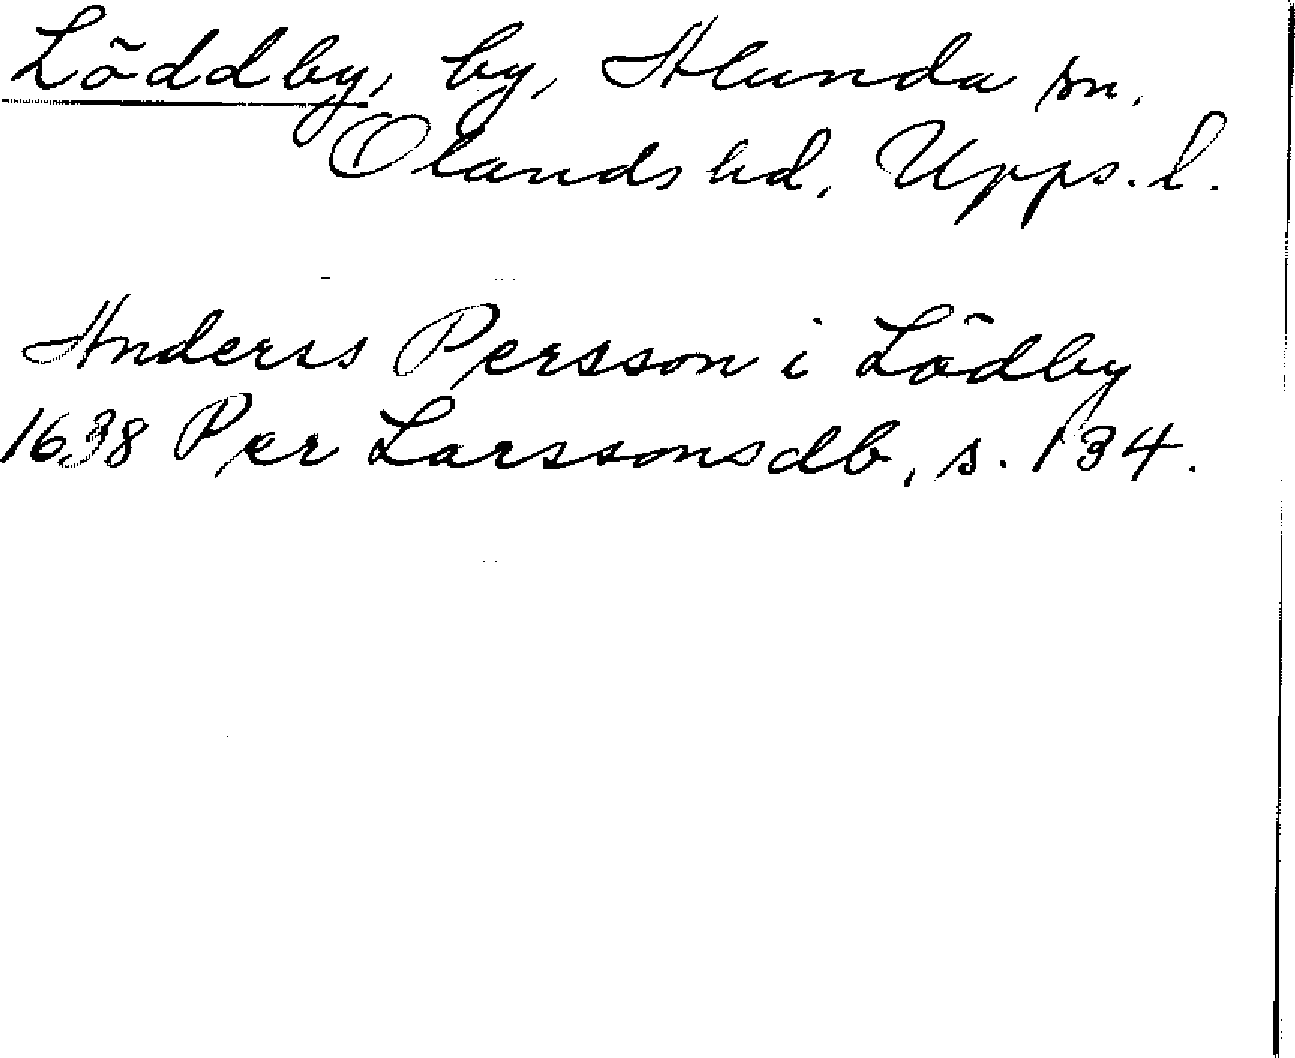 Löddby, by, Alunda sn.
Olands hd, Upps. l.
Anders Persson i Lödby
1638 Per Larssons db, s. 134.